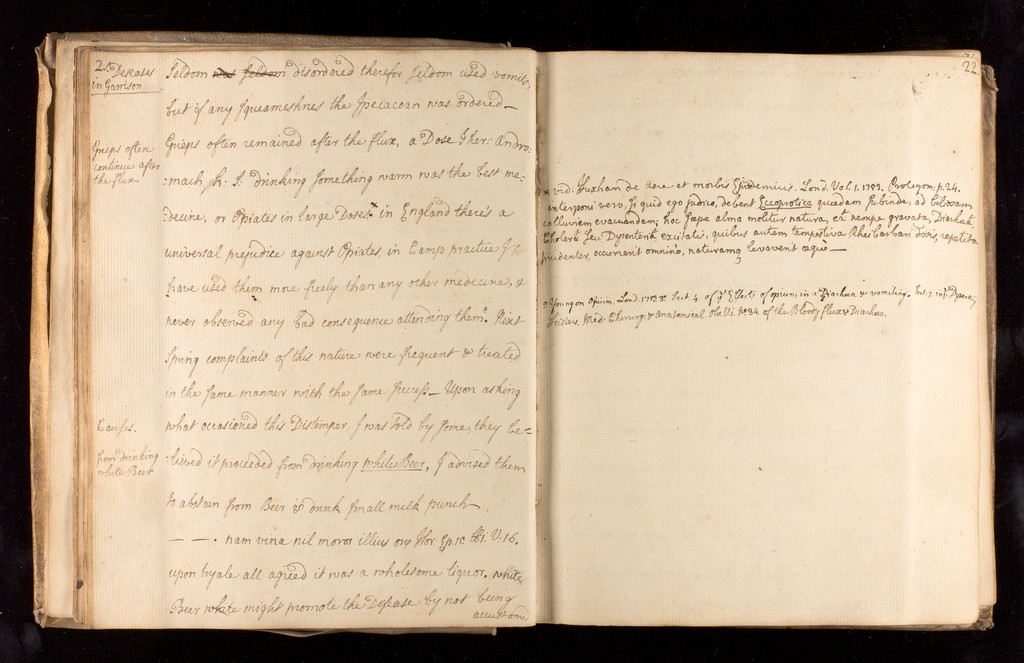 21
Deseases
in Garrison
Seldom was seldom disordered therefor seldom used vomits,
but if any squeameshnes the Ipecacoan was ordered_
Gripes often
continue after
the flux
Gripes often remained after the flux, a Dose Ther: Andro:
:mach, drinking something warm was the best me-
:decine, or Opiates in large Doses x in England there's a
universal prejudice against Opiates, in Camp practice I
have used them more freely than any other medecines, &
never observed any bad consequence attending them. Next
Spring complaints of this nature were frequent & treated
in the same manner with the same success_ Upon asking
Causes.
what occasioned this Distemper, I was told by some, they be-
from drinking
white Beer
:lieved it proceeded from drinking white Beer, I advised them
to abstain from Beer & drink small milk punch_
_ _ . nam vina nil moror illius oræ Hor. Ep. V. 16.
upon hyale all agreed it was a wholesome liquor. white
Beer white might promote the Desease by not being
accustomed
22
x vid. Huxham de Aere et morbis Epidemicis. Lond. Vol. 1. 1752. Prolegom. p. 24.
interponi vero, si quid ego judico, debent Eccoprotica quædam subinde, ad biliosam
colluviem evacuandam; hoc sæpe alma molitur natura, et nempe gravata, Diarhæâ
Cholerâ seu Dysenteriâ excitatis, quibus autem tempestiva Rheibarbari dosis, repetita
prudenter, occurrit omnino, naturamq levavent æquè_
Young on Opium. Lond. 1753. Sect. 4. of ye Effects of opium, in a Diarhæa & vomiting. Sect. 7. in ye Dysentery
Med: Chirurg: & Anatomical Obs. Vi. No 84. of the Bloody flux & Diarhæa.